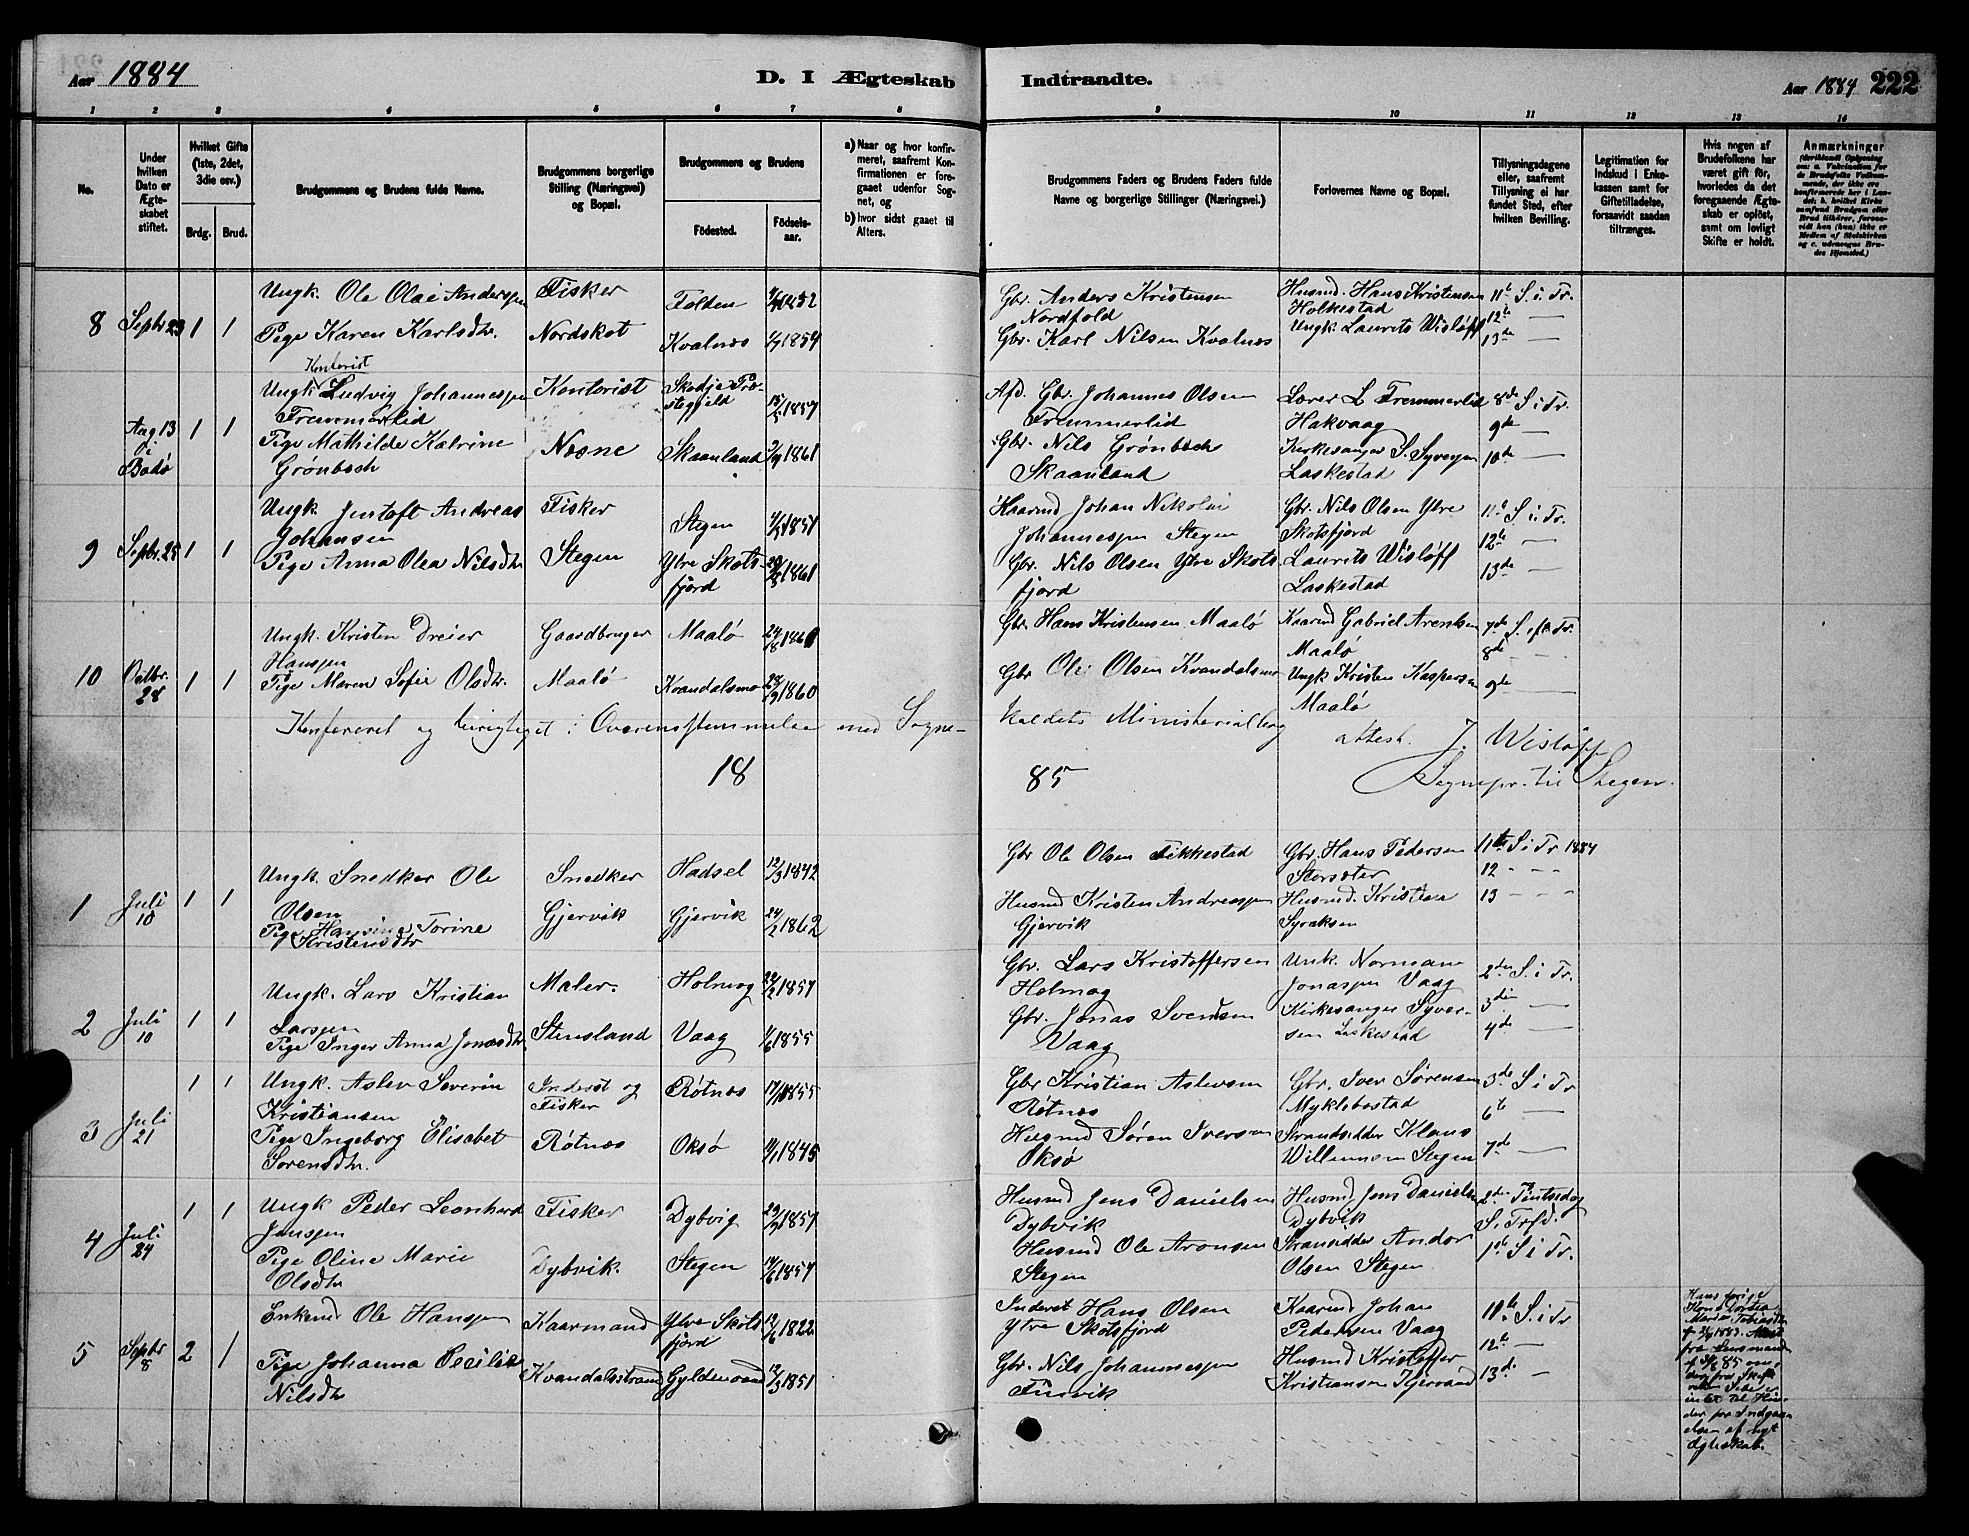 Aar 1884
D. I Ægteskab Indtraadte.
Aar 1884 222
1 2 3 4 5 6 7 8 9 10 11 12 13 14
No.
Under hvilken Dato er Ægteskabet stiftet.
Hvilket Gifte (1ste, 2det, 3die osv.)
Brdg. Brud.
Brudgommens og Brudens fulde Navne.
Brudgommens borgerlige Stilling (Næringsvei) og Bopæl.
Brudgommens og Brudens
Fødested. Fødselsaar.
a) Naar og hvor konfirmeret, saafremt Konfirmationen er foregaaet udenfor Sognet, og
b) hvor sidst gaaet til Alters.
Brudgommens Faders og Brudens Faders fulde Navne og borgerlige Stillinger (Næringsvei.)
Forlovernes Navne og Bopæl.
Tillysningsdagene eller, saafremt Tillysning ei har fundet Sted, efter hvilken Bevilling.
Legitimation for Indskud i Enkekassen samt for Giftetilladelse, forsaavidt saadan tiltrænges.
Hvis nogen af Brudefolkene har været gift før, hvorledes da det foregaaende Ægteskab er opløst, samt om lovligt Skifte er holdt.
Anmærkninger
8 Septbr 23 1 1
Ungk. Ole Olai Anderssen
Pige Karen Karlsdtr.
Fisker
Nordskot
Folden
Kvalnes 1854
Gbr. Anders Kristensen
Nordfold
Gbr. Karl Nilsen Kvalnes
Husmd. Hans Kristensen
Holkestad
Ungk Laurits Wisløff
11te S. i. Tr.
12te —
13de —
Aug 13 i Bodø 1 1
Kontorist
Ungk Ludvig Johannessen
Fremmerlid
Pige Mathilde Katrine
Grønbech
Kontorist
Nesne
Skodje Præstegjeld 1857
Skaanland 1861
Afd. Gbr. Johannes Olsen
Fremmerlid
Gbr. Nils Grønbech
Skaanland
Lærer L Fremmerlid
Hakvaag
Kirkesanger S. Syversen
Laskestad
8de S i Tr.
9de —
10de —
9 Septbr. 25 1 1
Ungk. Jentoft Andreas
Johansen
Pige Anna Olea Nilsdtr
Fisker
Stegen
Stegen 1857
Ytre Skotsfjord 1861
Kaarmd Johan Nikolai
Johannessen Stegen
Gbr. Nils Olsen Ytre Skotsfjord
Gbr. Nils Olsen Ytre
Skotsfjord
Laurits Wisløff
Laskestad
11te S. i. Tr.
12te —
13de —
10 Octbr. 28 1 1
Ungk. Kristen Dreier
Hanssen
Pige Maren Sofie Olsdtr.
Gaardbruger
Maalø
Maalø 24/8 1860
Kvandalsmo 1860
Gbr Hans Kristensen Maalø
Gbr Ole Olsen Kvandalsmo
Kaarmd Gabriel Arentsen
Maalø
Ungk Kristen Kaspersen
Maalø
7de S. eft Tr.
8de —
9de —
Konfereret og berigtiget i Overensstemmelse med Sogne-
kaldets Ministerialbog
attest. J. Wisløff
Sognepr. til Stegen.
18 85
1 Juli 10 1 1
Ungk. Snedker Ole
Olsen
Pige Hansine Torine
Kristensdtr
Snedker
Gjervik
Hadsel 12/3 1842
Gjervik 24/2 1862
Gbr Ole Olsen Fikkestad
Husmd Kristen Andreassen
Gjervik
Gbr. Hans Pedersen
Storsæter
Husmd. Kristian
Syraksen
11te S i Tr 1884
12 - - -
13 - - -
2 Juli 10 1 1
Ungk. Lars Kristian
Larssen
Pige Inger Anna Jonasdtr.
Maler.
Stensland
Holmog 22/2 1857
Vaag 1855
Gbr. Lars Kristoffersen
Holmog
Gbr. Jonas Svendsen
Vaag
Unk. Norman
Jonassen Vaag
Kirkesanger Syversen Laskestad
2den S. i Tr.
3die —
4de —
3 Juli 21 1 1
Ungk. Aslev Severin
Kristiansen
Pige Ingeborg Elisabet
Sørensdtr.
Inderst og
Fisker
Røtnes
Røtnes 1855
Oksø 1845
Gbr Kristian Aslevsen
Røtnes
Husmd Søren Iversen
Oksø
Gbr. Iver Sørensen
Myklebostad
Strandsidder Klaus
Willumsen Stegen
3de S i Tr
6te —
7de —
4 Juli 24 1 1
Ungk Peder Leonhard
Jenssen
Pige Oline Marie
Olsdtr
Fisker
Dybvik.
Dybvig 1857
Stegen 1857
Husmd Jens Danielsen
Dybvik
Husmd Ole Aronsen
Stegen
Husmd Jens Danielsen
Dybvik
Strandsidder Andor
Olsen Stegen
2den Pintsedag
S. Trfd.
1ste S i Tr.
5 Septbr 8 2 1
Enkemd Ole Hanssen
Pige Johanna Cecilie
Nilsdtr
Kaarmand
Kvandalsstrand
Ytre Skotsfjord 1822
Gyldenvand 12/3 1851
Inderst Hans Olsen
Ytre Skotsfjord
Gbr. Nils Johannessen
Furvik
Kaarmd Johan
Pedersen Vaag
Husmd Kristoffer
Kristiansen Kjørvand
11te S i Tr
12te —
13de —
Hans forrige
Kone Dortea
Maria Tobiasdtr
1883. Attest
fra Lensmand
85 om,
der fra Skifterettens Side er
intet til Hinder for Indgaaelsen af nyt
Ægteskab.